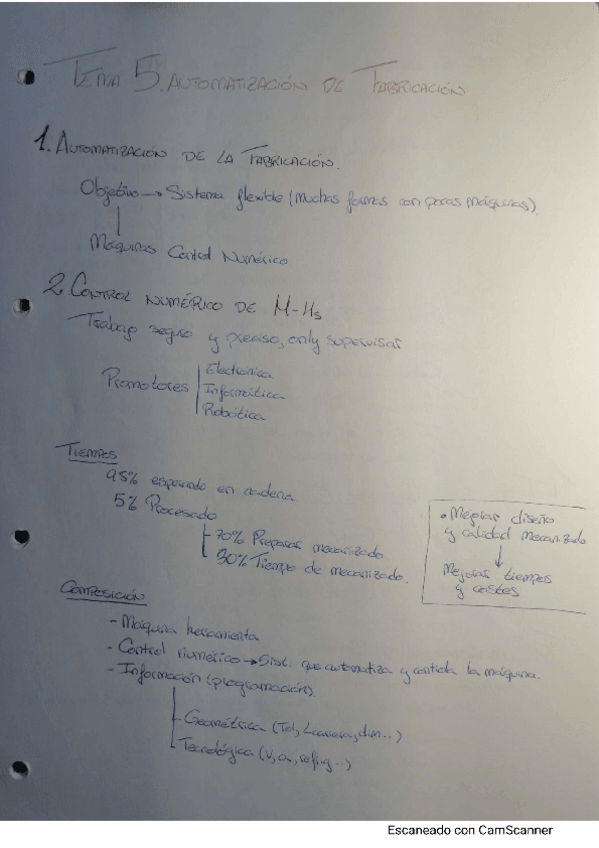 TEMA 5. AUTOMATIZACIÓN DE FABRICACIÓN
1. AUTOMATIZACIÓN DE LA FABRICACIÓN.
Objetivo → Sistema flexible (muchas formas con pocas máquinas).
Máquinas Control Numérico
2. CONTROL NUMÉRICO DE M-Hs
Trabajo seguro y preciso, only supervisar
Promotores
Electrónica
Informática
Robótica
TIEMPOS
95% esperando en cadena
5% Procesado
70% Preparar mecanizado
30% Tiempo de mecanizado.
• Mejorar diseño
y calidad mecanizado
↓
Mejoras tiempos
y costes
COMPOSICIÓN
- Máquina herramienta
- Control numérico → Sist. que automatiza y controla la máquina.
- Información (programación)
- Geométrica (Tol, Lcarrera, dim..)
Tecnológica (V, a, refrig..)
Escaneado con CamScanner